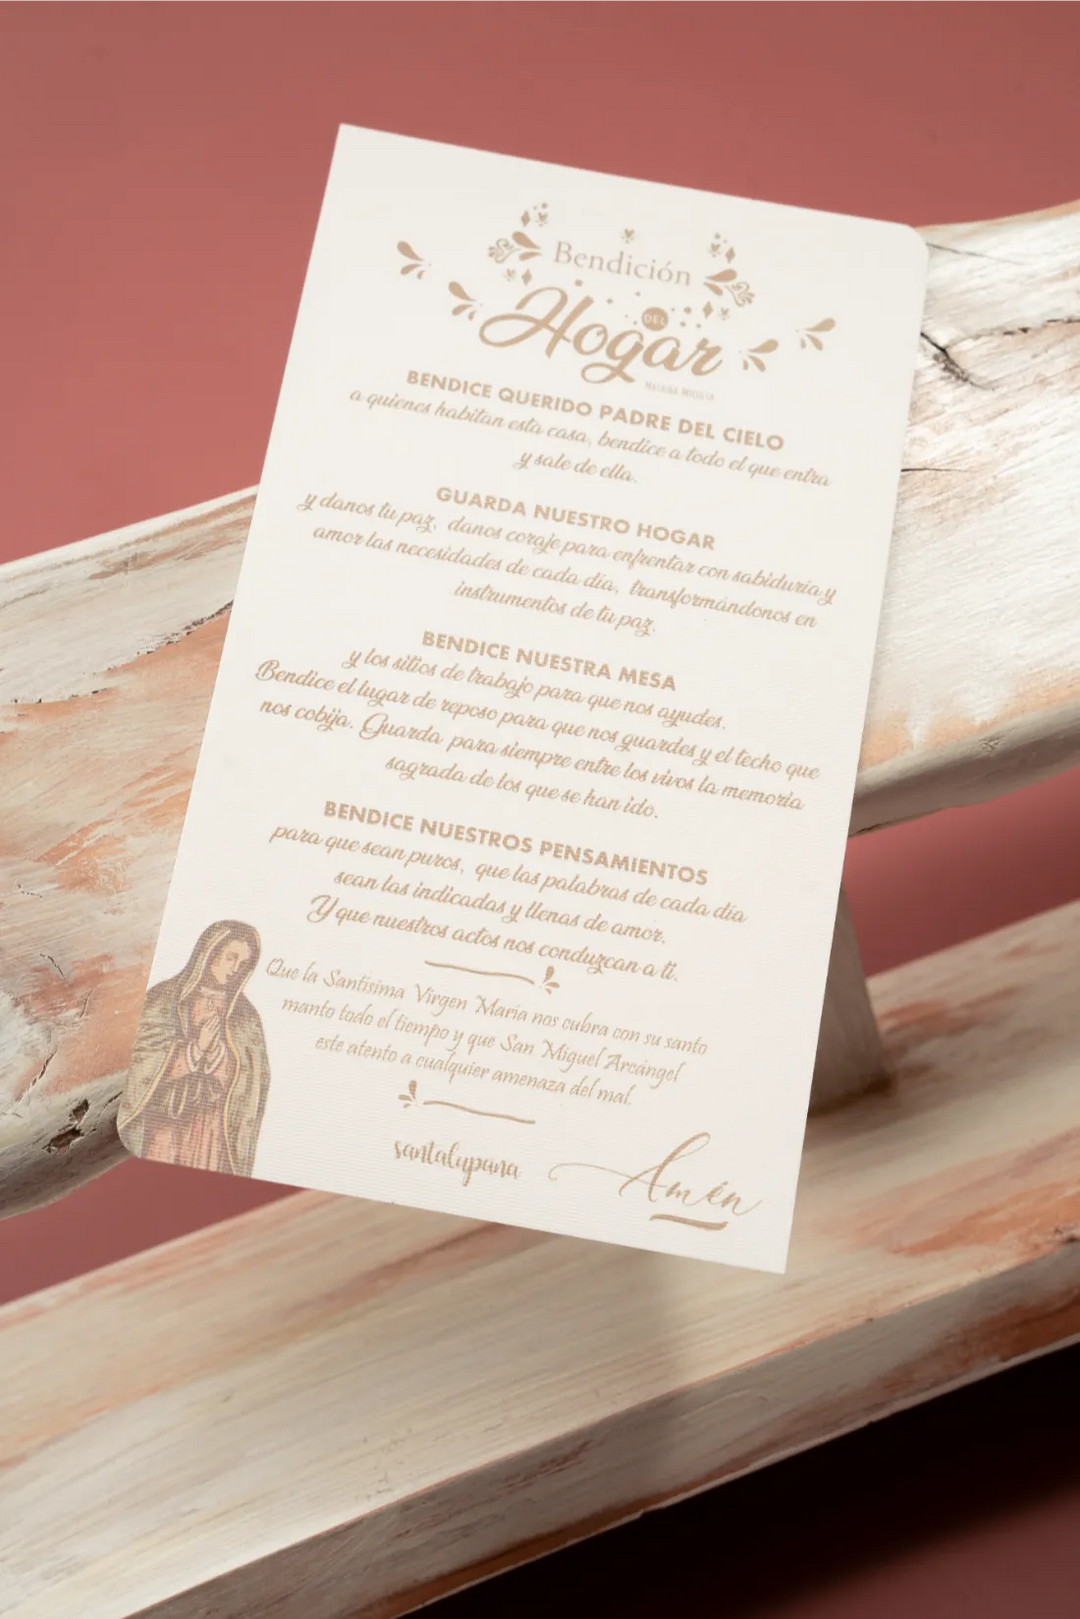 Bendición
DEL
Hogar
BENDICE QUERIDO PADRE DEL CIELO
a quienes habitan esta casa, bendice a todo el que entra
y sale de ella.
GUARDA NUESTRO HOGAR
y danos tu paz, danos coraje para enfrentar con sabiduría y
amor las necesidades de cada día, transformándonos en
instrumentos de tu paz.
BENDICE NUESTRA MESA
y los sitios de trabajo para que nos ayudes.
Bendice el lugar de reposo para que nos guardes y el techo que
nos cobija. Guarda para siempre entre los vivos la memoria
sagrada de los que se han ido.
BENDICE NUESTROS PENSAMIENTOS
para que sean puros, que las palabras de cada día
sean las indicadas y llenas de amor.
Y que nuestros actos nos conduzcan a ti.
Que la Santísima Virgen María nos cubra con su santo
manto todo el tiempo y que San Miguel Arcángel
este atento a cualquier amenaza del mal.
santalupana
Amén